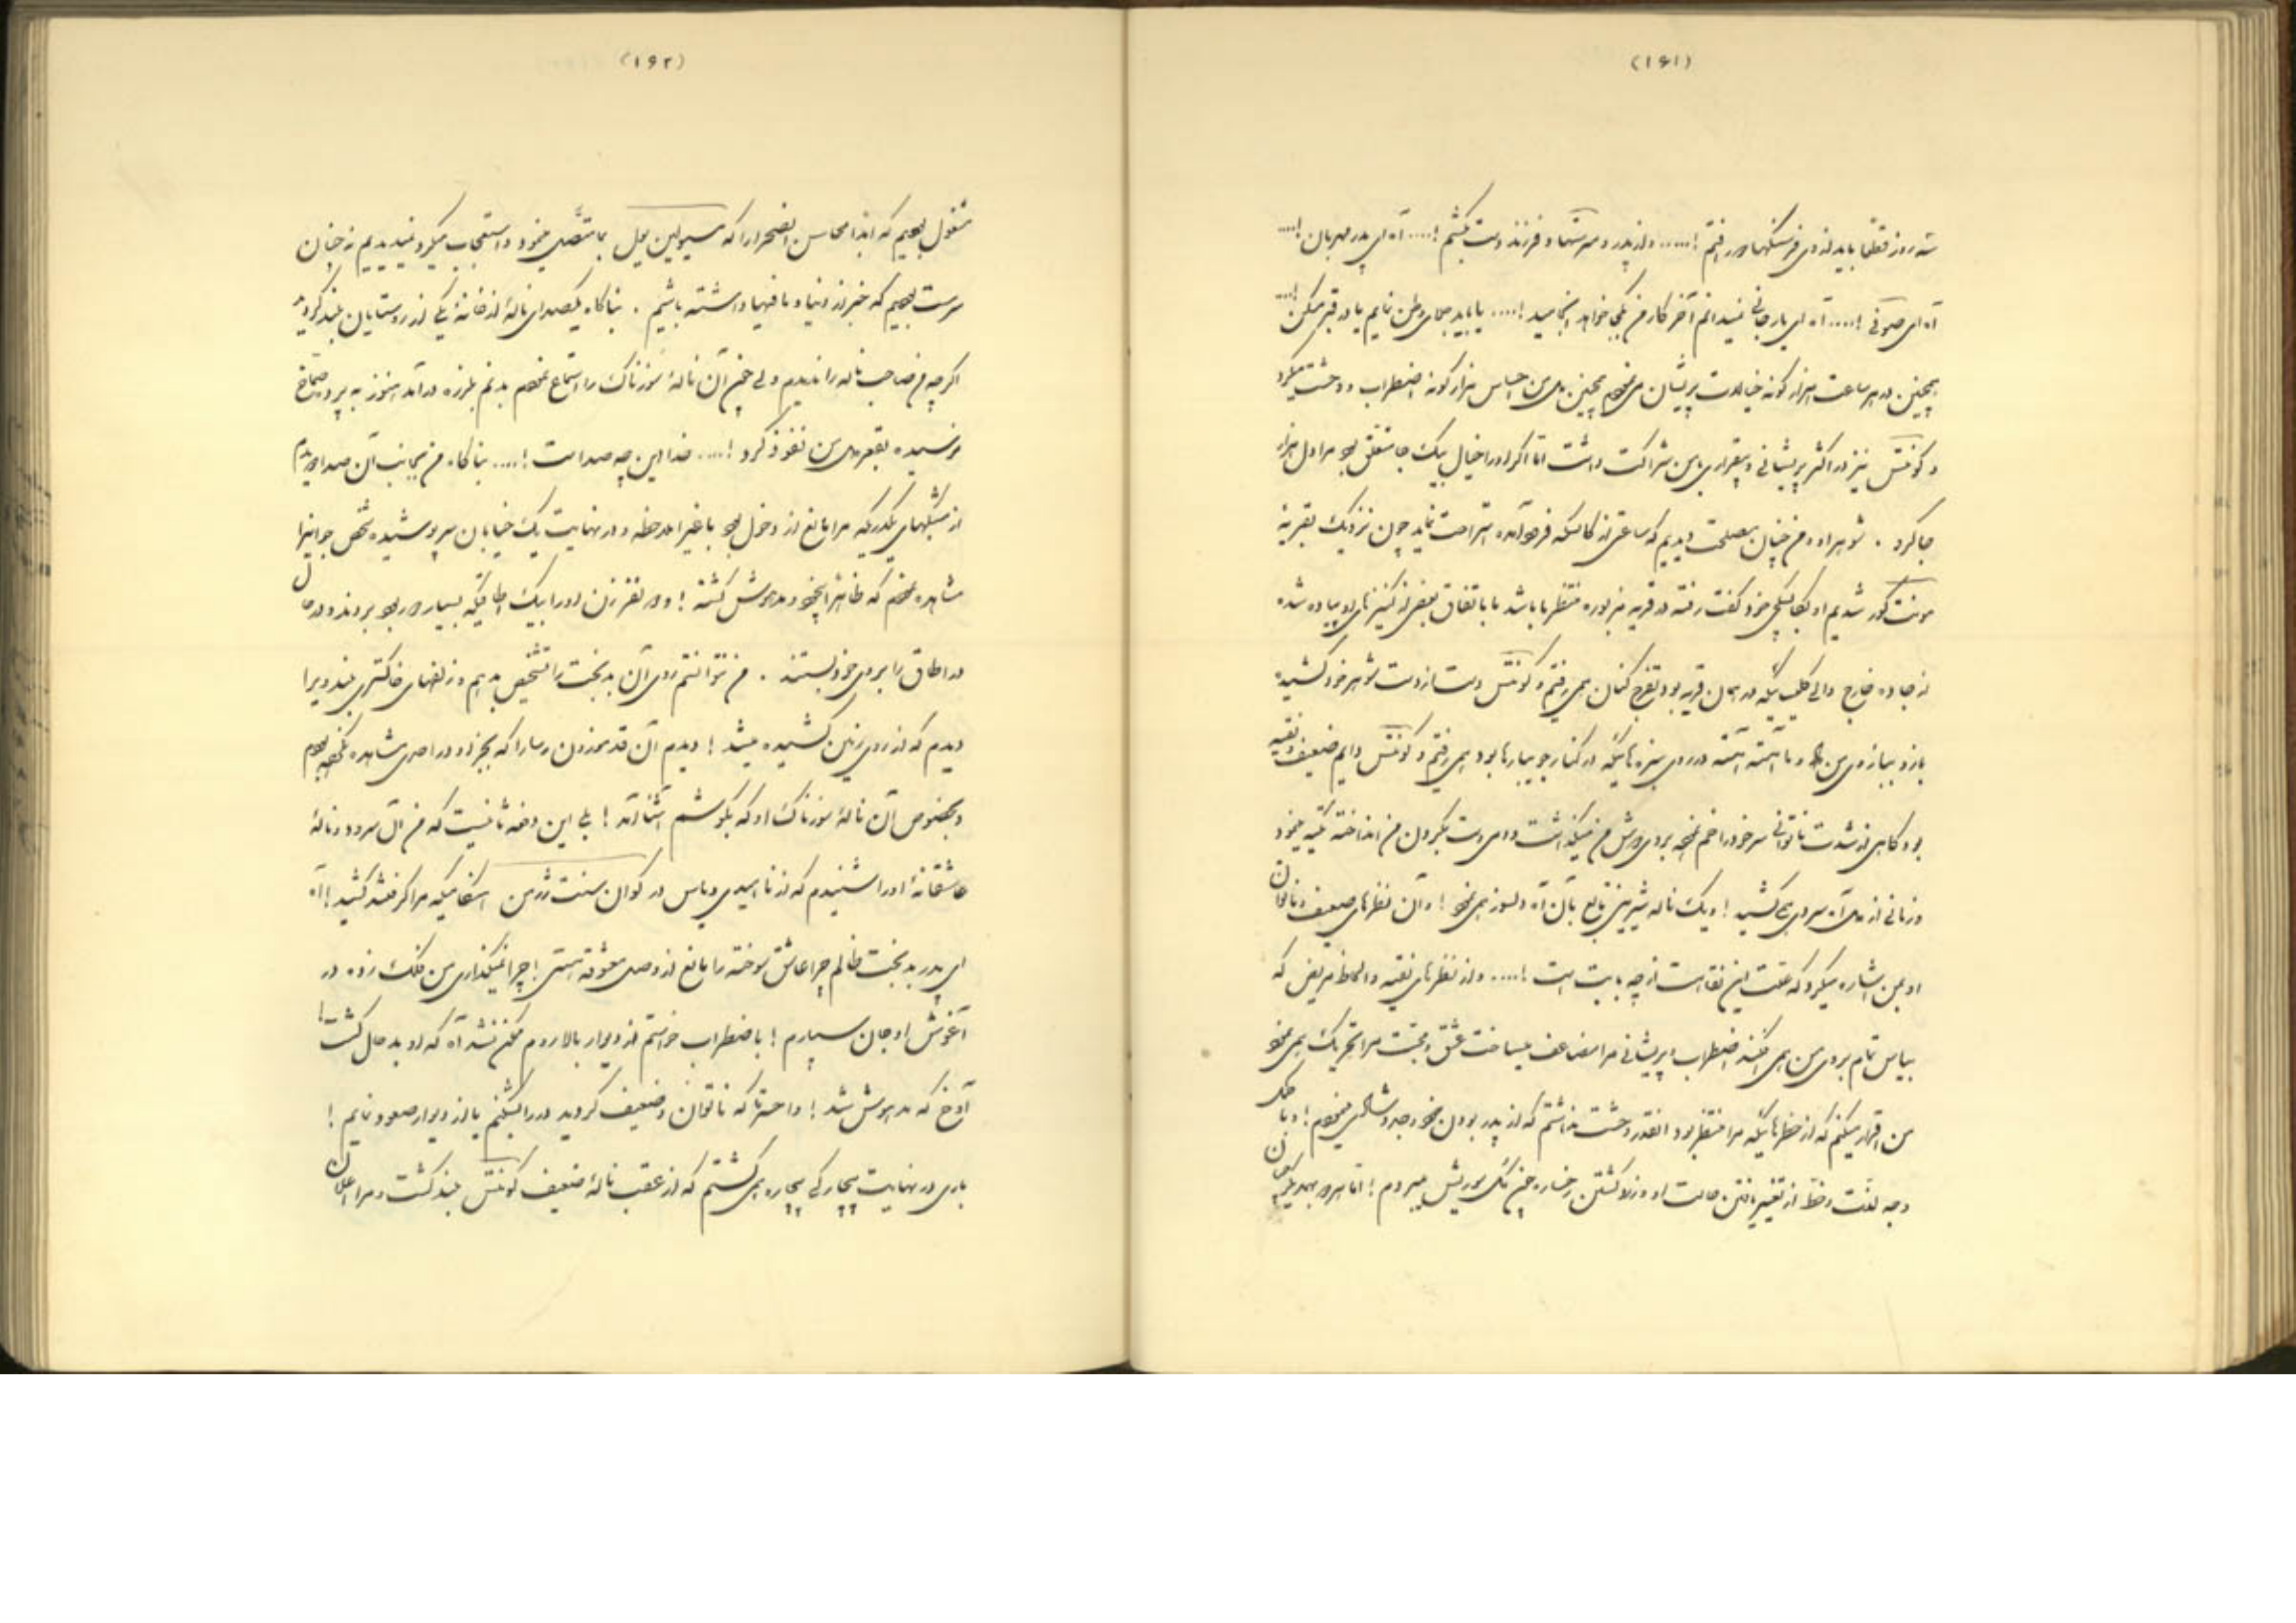 (۱۶۱)
سه روز قطعا باید از وی فرسنگها دور رفتم !..... و از پدر و فرزند دست بکشم !.... آه ای پدر مهربان !....
آه ای صوفی !.... آه ای یار جانی نمیدانم آخر کار من بکجا خواهد انجامید !.... یا باید جای وطن نمایم یا در قبر مسکن !....
همچنین در هر ساعت هزار گونه خیالات پریشان می نمودم همچنین برای من احساس هزار گونه اضطراب و وحشت میکرد
و کونتس نیز در اکثر پریشانی و بیقراری با من شراکت داشت اما اگر او را خیال بیک جا متعلق بود مرا دل هزار
جا کرد . شوهر او و من چنان مصلحت دیدیم که ساعتی از کالسکه فرود آمده استراحت نماید چون نزدیک بقریه
مونت شدیم او بکالسکچی خود گفت رفته در قریه مزبوره منتظر ما باشد ما با تفاق بعضی از کنیزهای او پیاده شده
از جاده خارج در همان قریه بود تفرج کنان همی رفتیم و کونتس دست از دست شوهر خود کشیده
بازو ببازوی من داد و ما آهسته آهسته در روی سبزه هائیکه در کنار جویبارها بود همی رفتیم و کونتس دایم ضعیف و نقیه
بود گاهی از شدت ناتوانی سر خود را خم نموده بروی دوش من میگذاشت و دمی دست بگردن من انداخته تکیه مینمود
و زمانی از دل آه سردی می کشید ! و یک ناله بآن آه دلسوز همی نمود ! و آن نظرهای ضعیف و ناتوان
او بمن اشاره میکرد که علت این نقاهت از چه بابت است !.... و از نظرهای نقیه و الحاظ مریض که
بیأس تمام بروی من همی افکند اضطراب و پریشانی مرا مضاعف میساخت عشق و محبت مرا تحریک همی نمود
من اقرار میکنم که از خطرهائیکه مرا منتظر بود آنقدر وحشت نداشتم که از پدر بودن خود وجد و شادی مینمودم ! و با کمال
وجد لذت و حظ از تغییر یافتن حالت او و زرد گشتن رخساره میبردم ! اما هر دو
(۱۶۲)
مشغول بودیم که ابدا محاسن آن صحرا را که مسیولین بول بما مینمود و استعجاب میکرد نمیدیدیم نه چنان
مرست بودیم که خبر از دنیا و مافیها داشته باشیم . بناگاه یکصدای نالهٔ از خانهٔ یکی از روستایان بلند گردید
اگرچه من صاحب ناله را ندیدم ولی چون آن نالهٔ سوزناک را استماع نمودم بدنم بلرزه در آمد هنوز به پرده صماخ
نرسیده بقعر دل من نفوذ کرد !.... خدا این چه صداست !.... بناگاه من بجانب آن صدا دویدم
از شبکهای یکدریکه مرا مانع از دخول بود باغی را ملاحظه و در نهایت یک خیابان سرپوشیده شخص جوانی را
مشاهده نمودم که ظاهرا بیخود و مدهوش گشته ! و دو نفر زن او را بیک اطاقیکه بسیار دور بود بردند و در حال
در اطاق را بروی خود بستند . من نتوانستم روی آن بدبخت را تشخیص بدهم و زلفهای خاکستری بلند ویرا
دیدم که از روی زمین کشیده میشد ! دیدم آن قد موزون رسا را که بجز او در احدی مشاهده نکرده بودم
و بخصوص آن نالهٔ سوزناک او که بگوشم آشنا آمد ! بلی این دفعه ثانیست که من آن سرود و نالهٔ
عاشقانهٔ او را شنیدم که از ناامیدی و یأس در کوان سنت ژرمن هنگامیکه مرا گرفتند کشید ! آه
ای پدر بدبخت ظالم چرا عاشق سوخته را مانع از وصل معشوقه هستی ! چرا نمیگذاری من فلک زده در
آغوش او جان سپارم ! با اضطراب خواستم از دیوار بالا روم ممکن نشد آه که او بد حال گشت !
آوخ که مدهوش شد ! واحسرتا که ناتوان و ضعیف گردید در را بشکنم یا از دیوار صعود نمایم !
باری در نهایت بیچارگی بیچاره همی گشتم که از عقب نالهٔ ضعیف کونتس بلند گشت و مرا اعلان